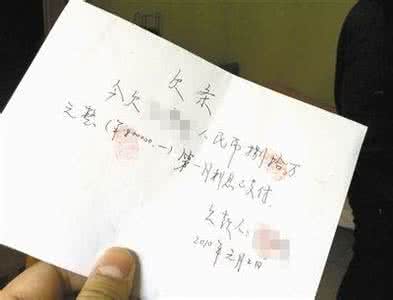 欠条
今欠 人民币捌拾万
元整(¥800000.-)第一月利息已交付
欠款人:
2010年元月2日